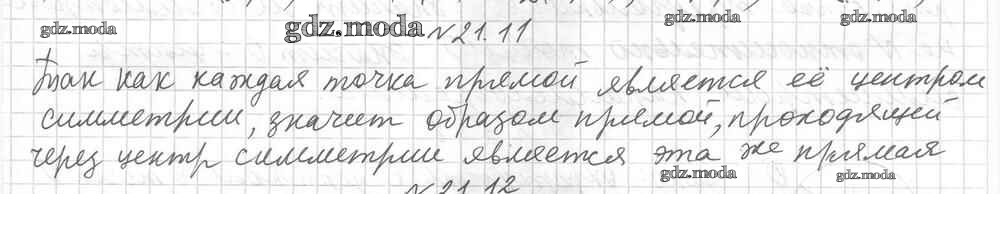 gdz.moda gdz.moda №21.11 gdz.moda gdz.moda
Так как каждая точка прямой является её центром
симметрии, значит образом прямой, проходящей
через центр симметрии является эта же прямая
№21.12 gdz.moda gdz.moda